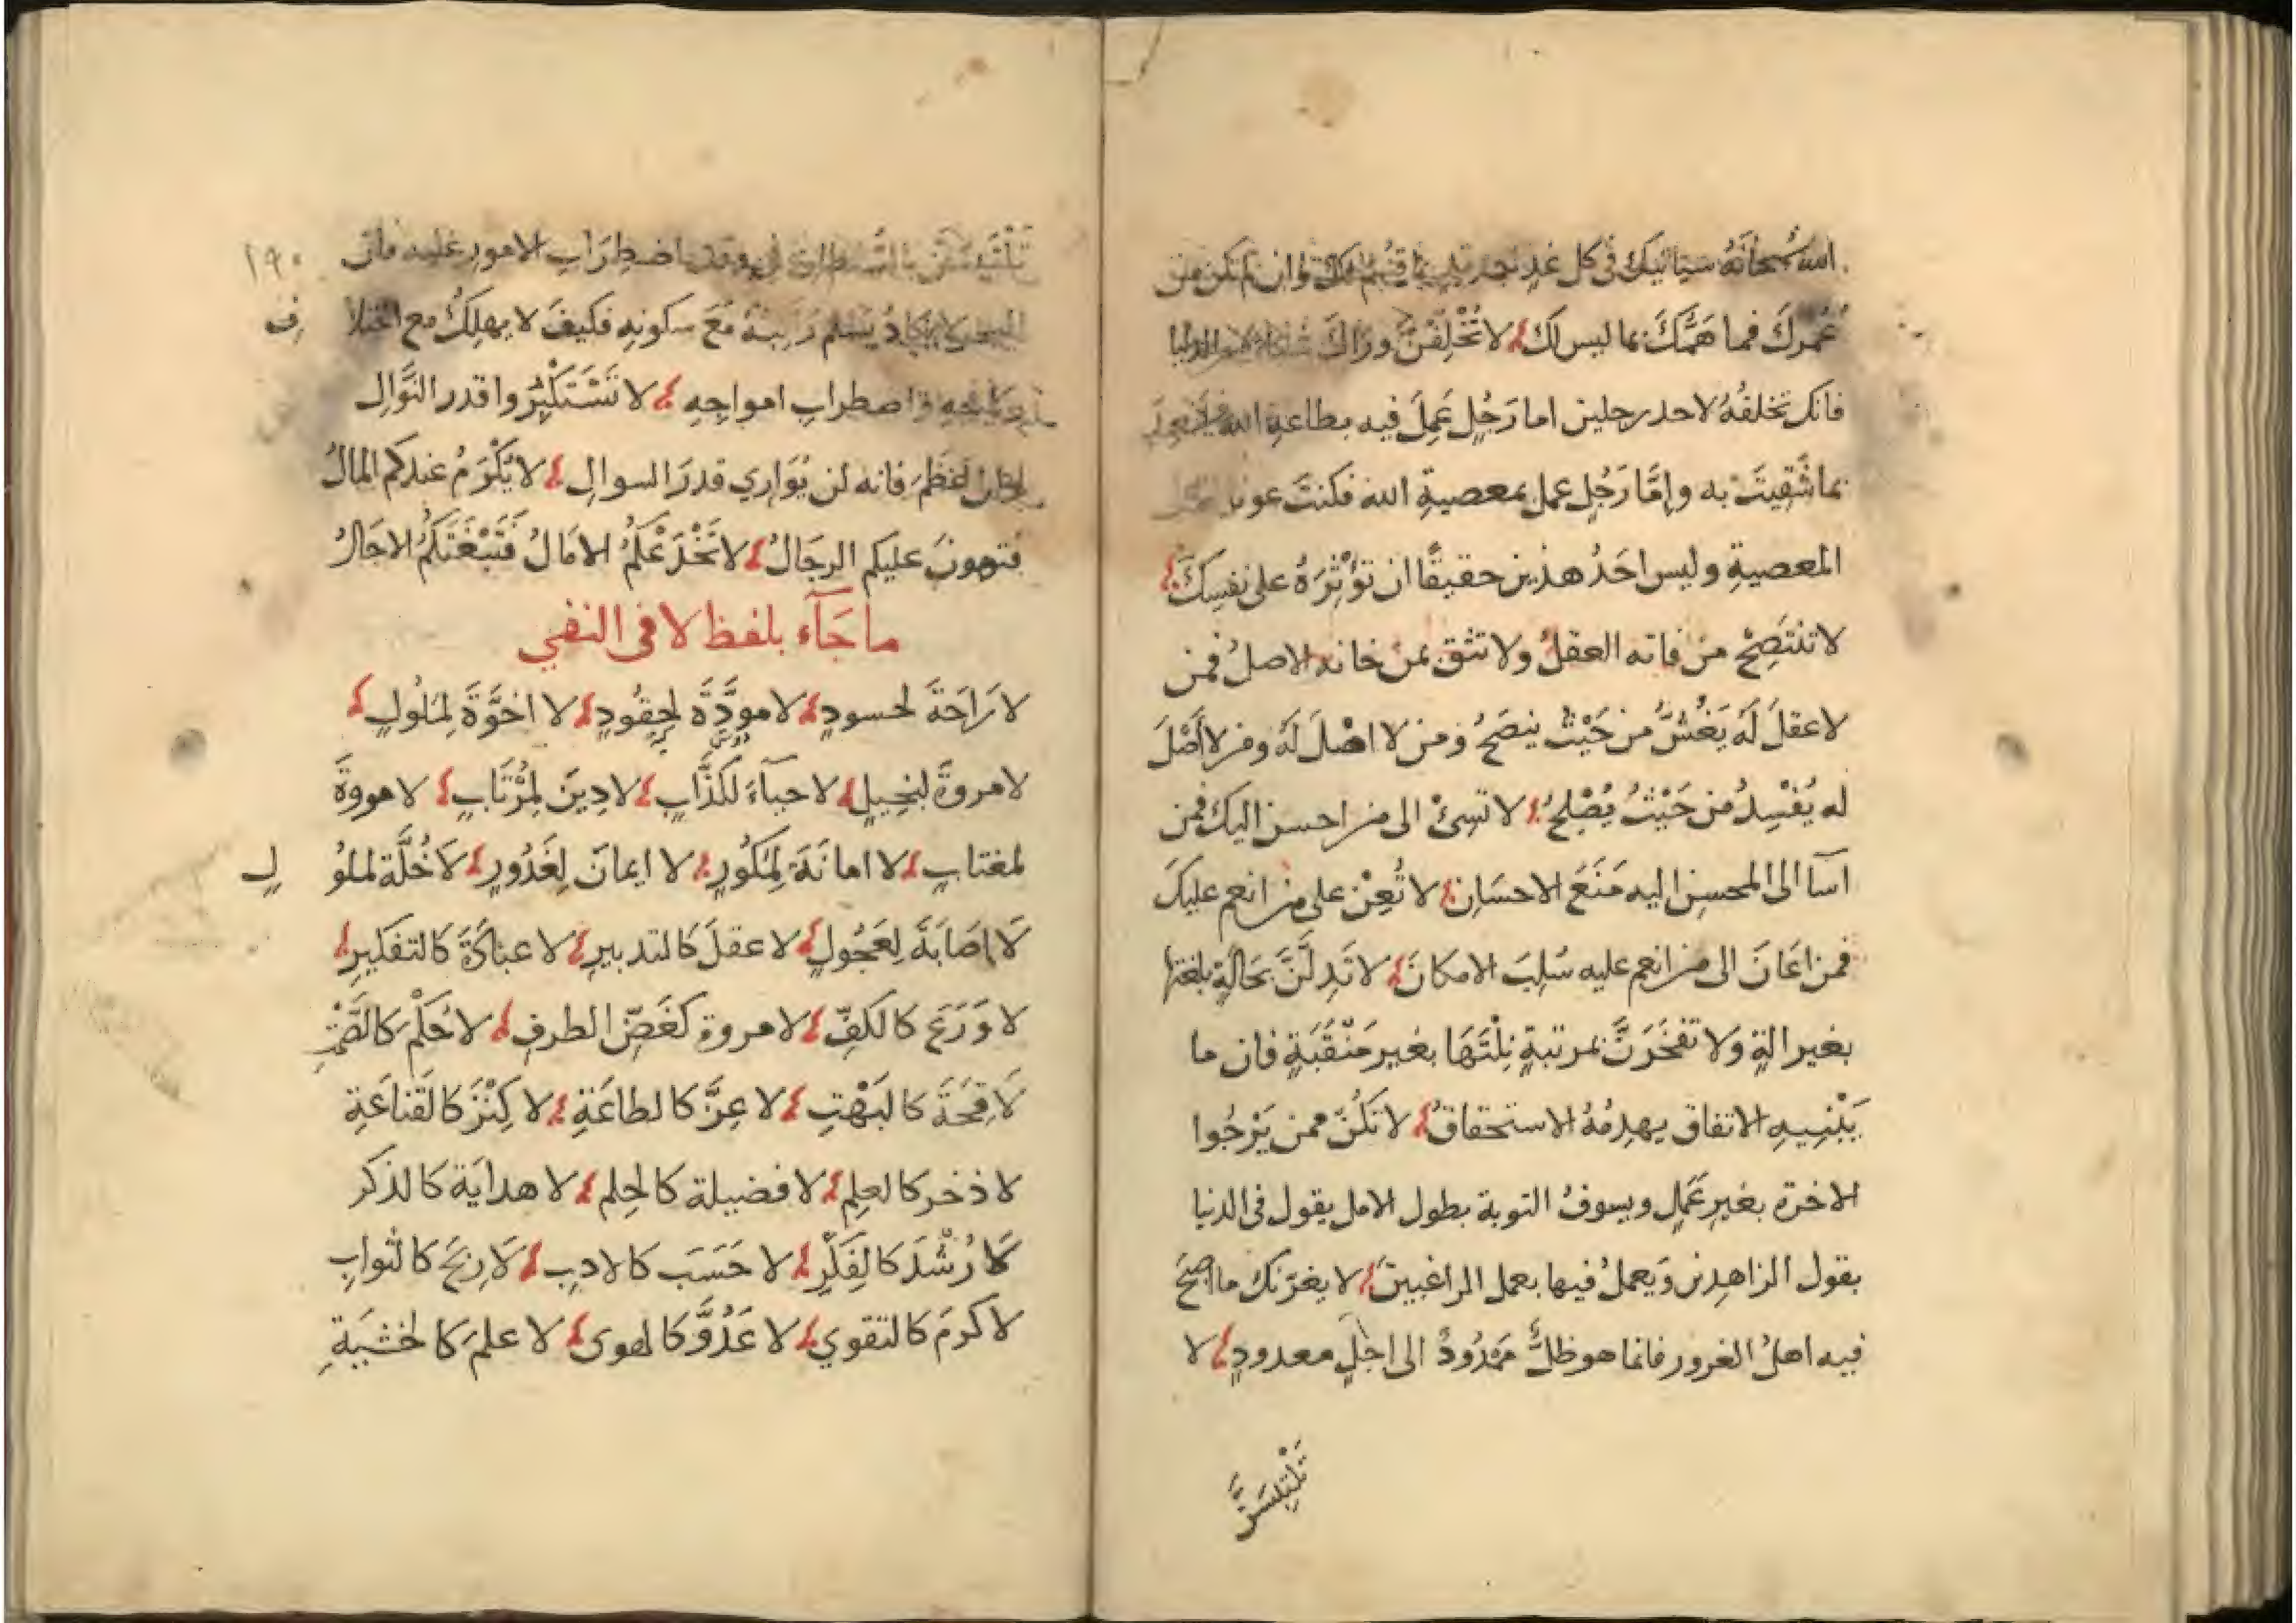 الله سُبحانَهُ سيَاتيكَ في كل غدٍ وان لم تكن من
عُمرِكَ فمَا هَمُّكَ بما ليس لك لا تُخْلِفَنَّ ورَاكَ الدنيا
فانك تخلفُهُ لاحد رجلين اما رَجُلٍ عَمِلَ فيه بطاعةِ الله
بما شَقِيتَ به وإمَّا رَجُلٍ عمل بمعصيةِ الله فكنتَ عو
المعصيةِ وليس احَدُ هذين حقيقًا ان تؤثِرَهُ على نفسِكَ
لا تنتَصِحْ مَن فاته العقلُ ولا تثق بمن خانه الاصلُ فمن
لا عقلَ لَهُ يَغُشُّ من حَيْثُ ينصَحُ ومن لا اصْلَ لَهُ ومن لا أصْلَ
له يُفْسِدُ من حَيْثُ يُصْلِحُ لا تسِئْ الى من احسن اليك فمن
اسآ الى المحسن اليه مَنَعَ الاحسَان لا تُعِنْ على من انعم عليكَ
فمن اعَانَ الى من انعم عليه سُلِبَ الامكانَ لا تَدِلَّنَّ بحَالةٍ بلغتها
بغير الةٍ وَلا تفخَرَنَّ بمرتبةٍ نِلْتَهَا بغير مَنْقَبَةٍ فان ما
يَبْنِيهِ الاتفاق يهدِمُهُ الاستحقاقُ لا تكُنْ ممن يَرْجُوا
الاخرة بغيرِ عَمَلٍ ويسوفُ التوبة بطول الامل يقول في الدنيا
بقول الزاهدِين وَيعملُ فيها بعمل الراغبينَ لا يغرّنك ما اصبحَ
فيه اهلُ الغرور فانما هو ظلٌّ مَمْدُودٌ الى اجلٍ معدودٍ لا
١٩٠
باضطِرَابِ الامور عليه فان
يسلم مَعَ سكونِهِ فكيفَ لا يهلِكُ مع اختلا ف
واضطرابِ امواجِهِ لا تَسْتَكْثِرُوا قدر النَّوَالِ
فانه لن يُوَارِي قدرَ السوالِ لا يَكْرَمُ عندكم المالُ
فتهونَ عليكم الرجَالُ لا تَخْدَعْكُمُ الامَالُ فَتَبْغَتَكُمُ الاجَالُ
ما جَآء بلفظ لا في النفي
لا رَاحَةَ لحسودٍ لا مودَّةَ لحِقُودٍ لا اخوَّةَ لِمَلُولٍ
لا مروةَ لبخِيلٍ لا حيآءَ لكذَّابٍ لا دِينَ لِمُرْتَابٍ لا مروةَ
لمغتابٍ لا امانَةَ لِمَكُورٍ لا ايمانَ لِغَدُورٍ لَا خُلَّةَ لملُو لٍ
لَا اصَابَةَ لِعَجُولٍ لا عقلَ كالتدبيرِ لا عبَادَةَ كالتفكيرِ
لا وَرَعَ كالكفِّ لا مروة كغَضِّ الطرفِ لا حُلمَ كالصَّمْتِ
لَا قِحَةَ كالبَهْتِ لا عِزَّ كالطاعَةِ لا كِنْزَ كالقناعَةِ
لا ذخر كالعِلمِ لا فضيلة كالحِلم لا هدايَة كالذكر
لا رُشْدَ كالفِكْرِ لا حَسَبَ كالادبِ لَا رِبْحَ كالثوابِ
لا كرمَ كالتقوي لا عَدُوَّ كالهوى لا علمَ كالخشيَةِ